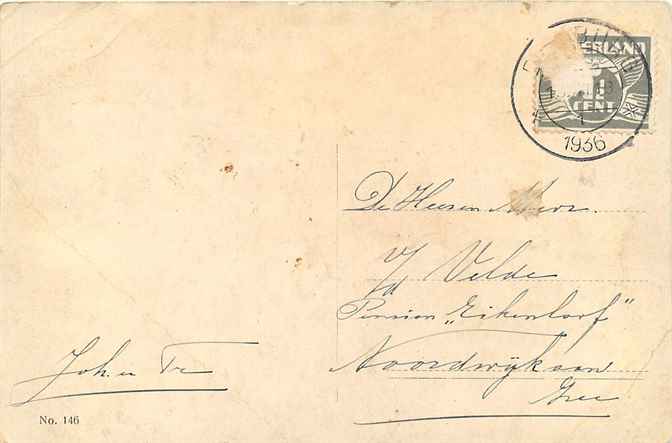 ERLAND
CENT
1936
De Heeren
v/d Velde
Pension „Eikenhorf"
Noordwijk aan
Zee
Joh. en Tr
No. 146